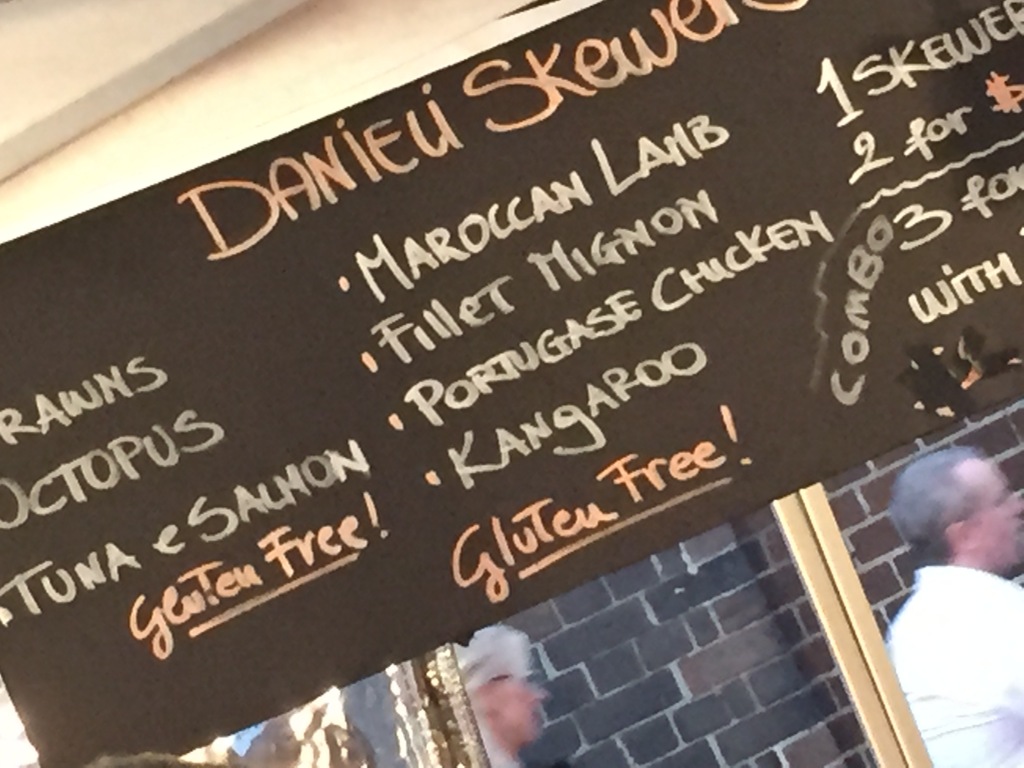 DANiELi SKewers
RAWNS
OCTOPUS
TUNA e SALMON
GluTen Free!
· MAROCCAN LAMB
· FilleT MIGNON
· PORTUGASE CHICKEN
· KANgAROO
GluTen Free!
1 SKEWER
2 for $
COMBO 3 for
WITH